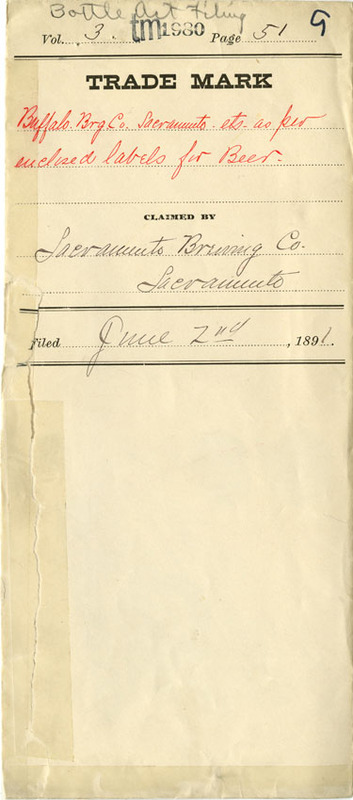 Bottle Act Filing
Vol. 3. tm1980 Page 51 9
TRADE MARK
Buffalo Brg Co. Sacramento etc. as per
enclosed labels for Beer.
CLAIMED BY
Sacramento Brewing Co.
Sacramento
Filed June 2nd, 1891.